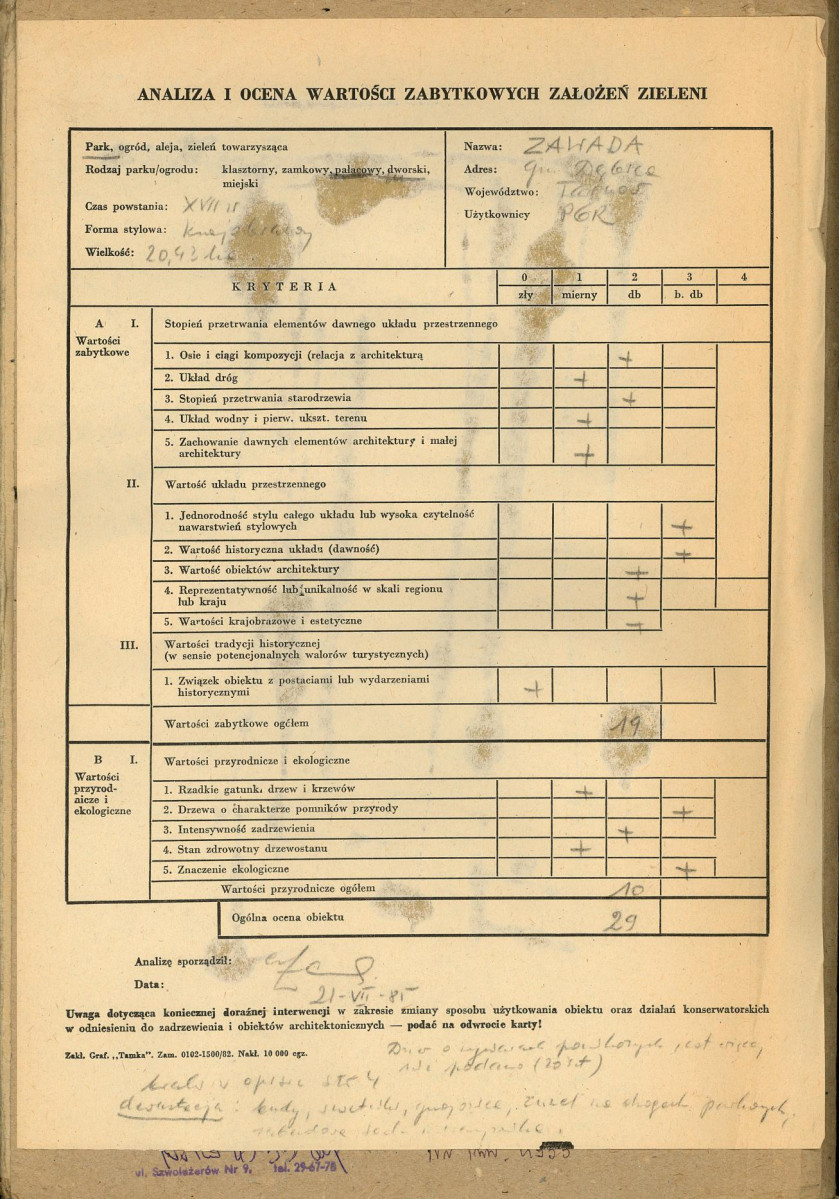 ANALIZA I OCENA WARTOŚCI ZABYTKOWYCH ZAŁOŻEŃ ZIELENI
Park, ogród, aleja, zieleń towarzysząca
Rodzaj parku/ogrodu: klasztorny, zamkowy, pałacowy, dworski,
miejski
Czas powstania: XVII w
Forma stylowa: krajobrazowy
Wielkość: 20,43 ha
Nazwa: ZAWADA
Adres: gm. Dębica
Województwo: Tarnów
Użytkownicy PGR
KRYTERIA
0 1 2 3 4
zły mierny db b. db
A I. Stopień przetrwania elementów dawnego układu przestrzennego
Wartości
zabytkowe
1. Osie i ciągi kompozycji (relacja z architekturą +
2. Układ dróg +
3. Stopień przetrwania starodrzewia +
4. Układ wodny i pierw. ukszt. terenu +
5. Zachowanie dawnych elementów architektury i małej
architektury +
II. Wartość układu przestrzennego
1. Jednorodność stylu całego układu lub wysoka czytelność
nawarstwień stylowych +
2. Wartość historyczna układu (dawność) +
3. Wartość obiektów architektury +
4. Reprezentatywność lub unikalność w skali regionu
lub kraju +
5. Wartości krajobrazowe i estetyczne +
III. Wartości tradycji historycznej
(w sensie potencjonalnych walorów turystycznych)
1. Związek obiektu z postaciami lub wydarzeniami
historycznymi +
Wartości zabytkowe ogółem 19
B I. Wartości przyrodnicze i ekologiczne
Wartości
przyrod-
nicze i
ekologiczne
1. Rzadkie gatunki drzew i krzewów +
2. Drzewa o charakterze pomników przyrody +
3. Intensywność zadrzewienia +
4. Stan zdrowotny drzewostanu +
5. Znaczenie ekologiczne +
Wartości przyrodnicze ogółem 10
Ogólna ocena obiektu 29
Analizę sporządził:
Data: 21-VII-85
Uwaga dotycząca koniecznej doraźnej interwencji w zakresie zmiany sposobu użytkowania obiektu oraz działań konserwatorskich
w odniesieniu do zadrzewienia i obiektów architektonicznych — podać na odwrocie karty!
Zakł. Graf. „Tamka". Zam. 0102-1500/82. Nakł. 10 000 egz.
Drzew o wymiarach pomnikowych jest więcej
niż podano
w opisie str 4
dewastacja: budy, śmietniki, żużel na drogach parkowych,
ul. Szwoleżerów Nr 9, tel. 29-67-78